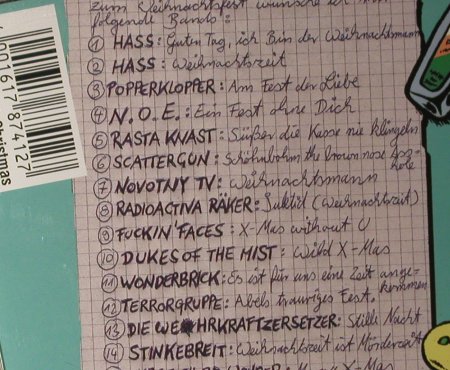 zum Weihnachtsfest wünsche ich mir
folgende Bands:
① HASS: Guten Tag, ich Bin der Weihnachtsmann
② HASS: Weihnachtszeit
③ POPPERKLOPPER: Am Fest der Liebe
④ N.O.E.: Ein Fest ohne Dich
⑤ RASTA KNAST: Süßer die Kasse nie klingeln
⑥ SCATTERGUN: Schöhnbohm the brown nose Ass-
hole
⑦ NOVOTNY TV: Weihnachtsmann
⑧ RADIOACTIVA RÄKER: Jultid (Weihnachtszeit)
⑨ FUCKIN' FACES: X-Mas without U
⑩ DUKES OF THE MIST: Wild X-Mas
⑪ WONDERBRICK: Es ist für uns eine Zeit ange-
kommen
⑫ TERRORGRUPPE: Abels trauriges Fest.
⑬ DIE WEHRKRAFTZERSETZER: Stille Nacht
⑭ STINKEBREIT: Weihnachtszeit ist Mörderzeit
X-Mas
001617 874127
ristmas